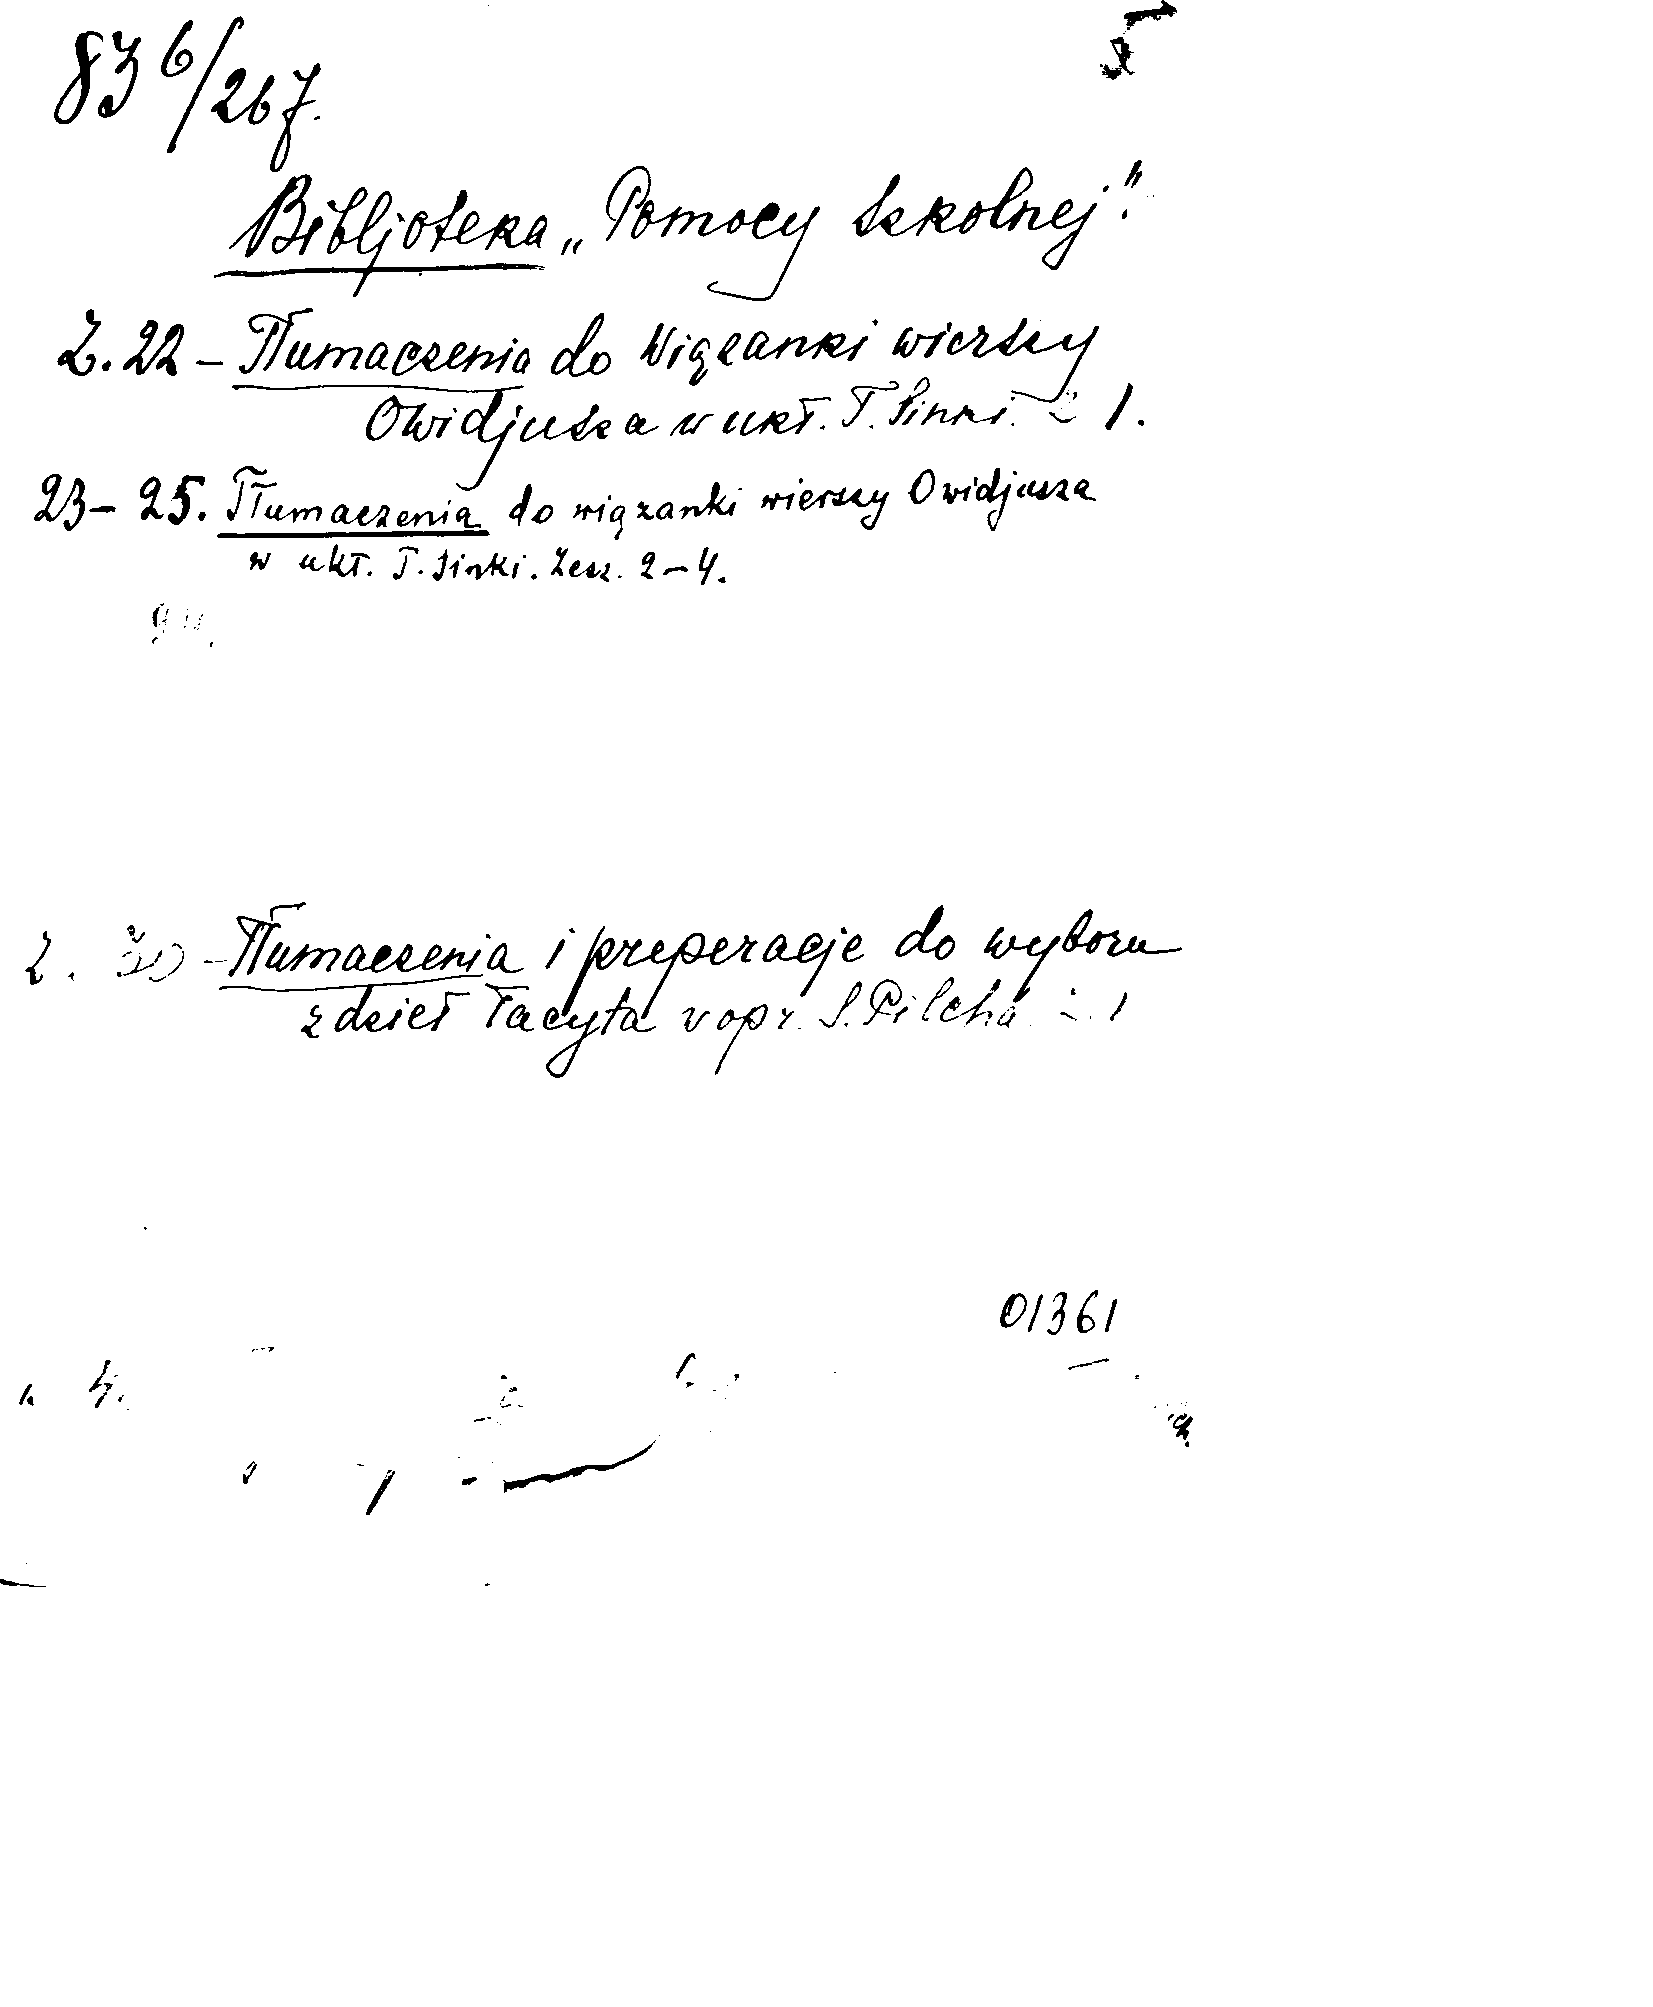 836/267.
5
Bibljoteka „Pomocy szkolnej".
Z. 22 – Tłumaczenia do Wiązanki wierszy
Owidjusza w ukł. T. Sinki. z 1.
23 – 25. Tłumaczenia do wiązanki wierszy Owidjusza
w ukł. T. Sinki. Zesz. 2 – 4.
Z. 30 – Tłumaczenia i preperacje do wyboru
z dzieł Tacyta w opr. S. Pilcha z. 1
01361